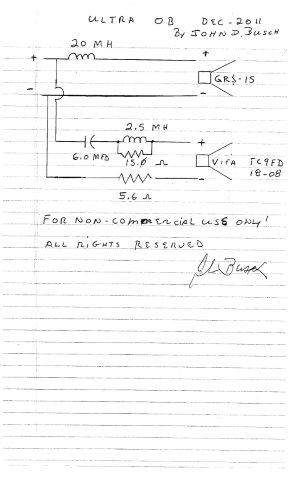 ULTRA OB DEC-2011
By JOHN D. BUSCH
20 MH
+ +
GRS-15
- -
2.5 MH
+
6.0 MFD
15.0 Ω
VIFA TC9FD
18-08
-
5.6 Ω
FOR NON-COMMERCIAL USE ONLY!
ALL RIGHTS RESERVED
John Busch